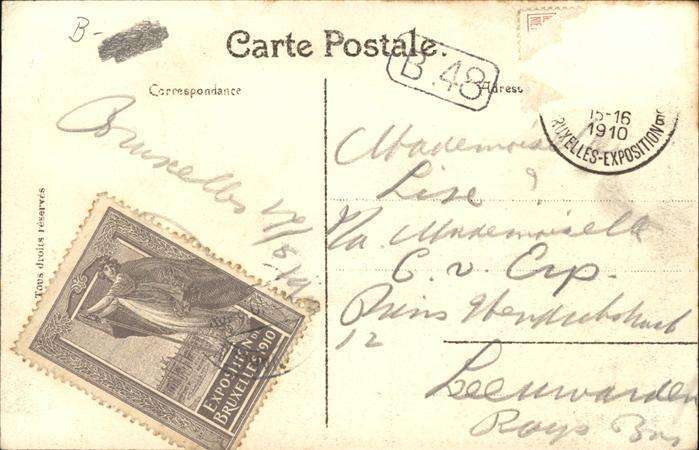 B-
Carte Postale.
B.48
Correspondance
Adresse
15-16
1910
BRUXELLES-EXPOSITION
Bruxelles
Mademoiselle
Lise
p/a. Mademoiselle
C. v. Erp.
Prins Hendrikstraat
12
Leeuwarden
Pays Bas
Tous droits réservés
EXPOSITION DE
BRUXELLES. 1910